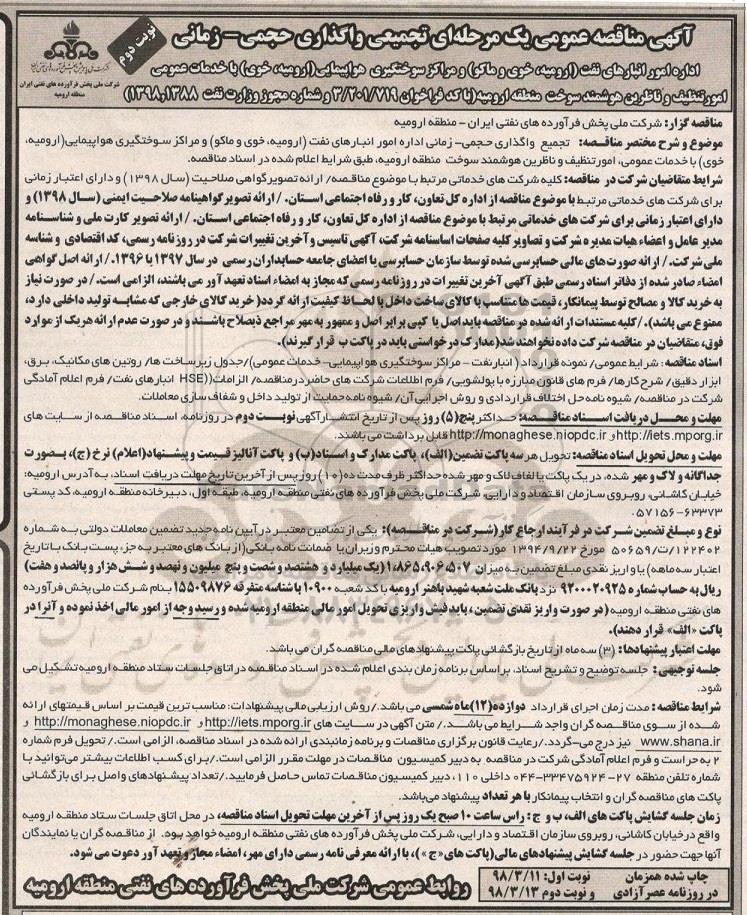 آگهی مناقصه عمومی یک مرحله‌ای تجمیعی واگذاری حجمی - زمانی
نوبت دوم
اداره امور انبارهای نفت (ارومیه، خوی و ماکو) و مراکز سوختگیری هواپیمایی (ارومیه، خوی) با خدمات عمومی
امور تنظیف و ناظرین هوشمند سوخت منطقه ارومیه (با کد فراخوان ۳/۲۰۱/۷۱۹ و شماره مجوز وزارت نفت ۱۳۹۸,۱۳۸۸)
شرکت ملی پخش فرآورده های نفتی ایران
منطقه ارومیه
مناقصه گزار: شرکت ملی پخش فرآورده های نفتی ایران - منطقه ارومیه
موضوع و شرح مختصر مناقصه: تجمیع واگذاری حجمی- زمانی اداره امور انبارهای نفت (ارومیه، خوی و ماکو) و مراکز سوختگیری هواپیمایی(ارومیه،
خوی) با خدمات عمومی، امور تنظیف و ناظرین هوشمند سوخت منطقه ارومیه، طبق شرایط اعلام شده در اسناد مناقصه.
شرایط متقاضیان شرکت در مناقصه: کلیه شرکت های خدماتی مرتبط با موضوع مناقصه/ ارائه تصویر گواهی صلاحیت (سال ۱۳۹۸) و دارای اعتبار زمانی
برای شرکت های خدماتی مرتبط با موضوع مناقصه از اداره کل تعاون، کار و رفاه اجتماعی استان. / ارائه تصویر گواهینامه صلاحیت ایمنی (سال ۱۳۹۸) و
دارای اعتبار زمانی برای شرکت های خدماتی مرتبط با موضوع مناقصه از اداره کل تعاون، کار و رفاه اجتماعی استان. / ارائه تصویر کارت ملی و شناسنامه
مدیر عامل و اعضاء هیات مدیره شرکت و تصاویر کلیه صفحات اساسنامه شرکت، آگهی تاسیس و آخرین تغییرات شرکت در روزنامه رسمی، کد اقتصادی و شناسه
ملی شرکت. / ارائه صورت های مالی حسابرسی شده توسط سازمان حسابرسی یا اعضای جامعه حسابداران رسمی در سال ۱۳۹۷ یا ۱۳۹۶. / ارائه اصل گواهی
امضاء صادر شده از دفاتر اسناد رسمی طبق آگهی آخرین تغییرات در روزنامه رسمی که مجاز به امضاء اسناد تعهدآور می باشند، الزامی است. / در صورت نیاز
به خرید کالا و مصالح توسط پیمانکار، قیمت ها متناسب با کالای ساخت داخل با لحاظ کیفیت ارائه گردد (خرید کالای خارجی که مشابه تولید داخلی دارد،
ممنوع می باشد). /کلیه مستندات ارائه شده در مناقصه باید اصل یا کپی برابر اصل و ممهور به مهر مراجع ذیصلاح باشند و در صورت عدم ارائه هریک از موارد
فوق، متقاضیان در مناقصه شرکت داده نخواهند شد(مدارک درخواستی باید در پاکت ب قرار گیرند).
اسناد مناقصه: شرایط عمومی/ نمونه قرارداد ( انبار نفت - مراکز سوختگیری هواپیمایی- خدمات عمومی)/جدول زیرساخت ها/ روتین های مکانیک، برق،
ابزار دقیق / شرح کارها/ فرم های قانون مبارزه با پولشویی/ فرم اطلاعات شرکت های حاضر در مناقصه/ الزامات((HSE انبارهای نفت/ فرم اعلام آمادگی
شرکت در مناقصه/ شیوه نامه حل اختلاف قراردادی و روش اجرایی آن/ شیوه نامه حمایت از تولید داخل و شفاف سازی معاملات.
مهلت و محل دریافت اسناد مناقصه: حداکثر پنج(۵) روز پس از تاریخ انتشار آگهی نوبت دوم در روزنامه، اسناد مناقصه از سایت های
http://iets.mporg.ir و http://monaghese.niopdc.ir قابل برداشت می باشد.
مهلت و محل تحویل اسناد مناقصه: تحویل هر سه پاکت تضمین (الف)، پاکت مدارک و اسناد (ب) و پاکت آنالیز قیمت و پیشنهاد(اعلام) نرخ (ج)، بصورت
جداگانه و لاک و مهر شده، در یک پاکت یا لفاف لاک و مهر شده حداکثر ظرف مدت ده (۱۰) روز پس از آخرین تاریخ مهلت دریافت اسناد، به آدرس ارومیه:
خیابان کاشانی، روبروی سازمان اقتصاد و دارایی شرکت ملی پخش فرآورده های نفتی منطقه ارومیه، طبقه اول، دبیرخانه منطقه ارومیه، کد پستی
۵۷۱۵۶-۶۳۳۷۳.
نوع و مبلغ تضمین شرکت در فرآیند ارجاع کار (شرکت در مناقصه): یکی از تضامین معتبر در آیین نامه جدید تضمین معاملات دولتی به شماره
۱۲۳۴۰۲/ت/۵۰۶۵۹ مورخ ۱۳۹۴/۹/۲۲ مورد تصویب هیات محترم وزیران یا ضمانت نامه بانکی(از بانک های معتبر به جز، پست بانک با تاریخ
اعتبار سه ماهه) یا واریز نقدی مبلغ تضمین به میزان ۱،۸۶۵،۹۰۶،۵۰۷(یک میلیارد و هشتصد و شصت و پنج میلیون و نهصد و شش هزار و پانصد و هفت)
ریال به حساب شماره ۹۲۰۰۰۲۰۹۲۵ نزد بانک ملت شعبه شهید باهنر ارومیه با کد شعبه ۱۰۹۰۰ با شناسه متفرقه ۱۵۵۰۹۸۷۶ بنام شرکت ملی پخش فرآورده
های نفتی منطقه ارومیه (در صورت واریز نقدی تضمین ، باید فیش واریزی تحویل امور مالی منطقه ارومیه شده و رسید وجه از امور مالی اخذ نموده و آنرا در
پاکت «الف» قرار دهند).
مهلت اعتبار پیشنهادها: (۳) سه ماه از تاریخ بازگشائی پاکت پیشنهادهای مالی مناقصه گران می باشد.
جلسه توجیهی: جلسه توضیح و تشریح اسناد، براساس برنامه زمان بندی اعلام شده در اسناد مناقصه در اتاق جلسات ستاد منطقه ارومیه تشکیل می
شود.
شرایط مناقصه: مدت زمان اجرای قرارداد دوازده (۱۲) ماه شمسی می باشد./ روش ارزیابی مالی پیشنهادات: مناسب ترین قیمت بر اساس قیمتهای ارائه
شده از سوی مناقصه گران واجد شرایط می باشد. / متن آگهی در سایت های http://iets.mporg.ir و http://monaghese.niopdc.ir و
www.shana.ir نیز درج می-گردد./ رعایت قانون برگزاری مناقصات و برنامه زمانبندی ارائه شده در اسناد مناقصه، الزامی است./ تحویل فرم شماره
۲ به حراست و فرم اعلام آمادگی شرکت در مناقصه به دبیر کمیسیون مناقصات در مهلت مقرر الزامی است./ برای کسب اطلاعات بیشتر می‌توانید با
شماره تلفن منطقه ۲۷-۳۳۴۷۵۹۲۴-۰۴۴ داخلی ۱۱۰، دبیر کمیسیون مناقصات تماس حاصل فرمایید./تعداد پیشنهادهای واصل برای بازگشائی
پاکت های مناقصه گران و انتخاب پیمانکار با هر تعداد پیشنهاد می‌باشد.
زمان جلسه گشایش پاکت های الف، ب و ج : راس ساعت ۱۰ صبح یک روز پس از آخرین مهلت تحویل اسناد مناقصه، در محل اتاق جلسات ستاد منطقه ارومیه
واقع در خیابان کاشانی، روبروی سازمان اقتصاد و دارایی، شرکت ملی پخش فرآورده های نفتی منطقه ارومیه خواهد بود. از مناقصه گران یا نمایندگان
آنها جهت حضور در جلسه گشایش پیشنهادهای مالی(پاکت های «ج»)، با ارائه معرفی نامه رسمی دارای مهر، امضاء مجاز و تعهدآور دعوت می شود.
چاپ شده همزمان
در روزنامه عصر آزادی
نوبت اول: ۹۸/۳/۱۱
و نوبت دوم ۹۸/۳/۱۳
روابط عمومی شرکت ملی پخش فرآورده های نفتی منطقه ارومیه